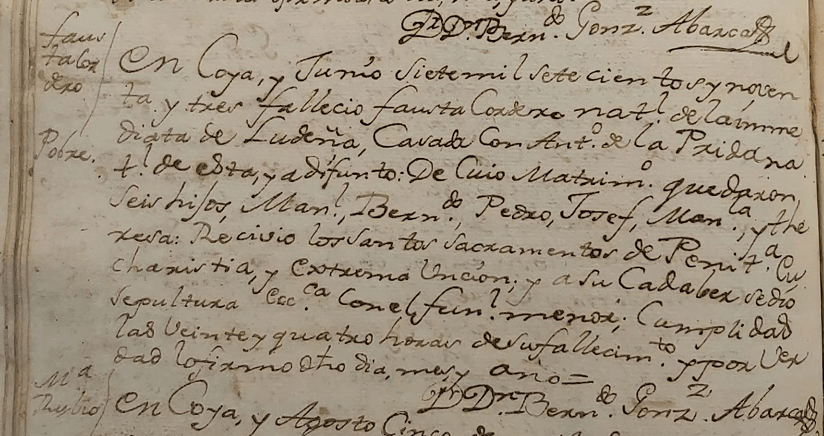 Dn. Dr. Bern.do Gonz.z Abarca
faus
ta Cor
dero
Pobre.
En Coya, y Junio siete mil sete cientos y noven
ta y tres fallecio fausta Cordero nat.l de la imme
diata de Ludeña, Casada Con Ant.o de la Prida na
t.l de esta, y a difunto: De Cuio Matrim.o quedaron
seis hijos, Man.l, Bern.do, Pedro, Josef, Man.la, y the
resa: Recivio los santos sacramentos de Penit.a Eu
charistia, y extrema Uncion; y a su Cadaber se dio
sepultura Ecc.ca Con el fun.l menor; Cumplidas
las veinte y quatro horas de su fallecim.to y por Ver
dad lo firmo dho dia, mes y año=
Dn. Dr. Bern.do Gonz.z Abarca
M.a
Rubio
En Coya, y Agosto Cinco de